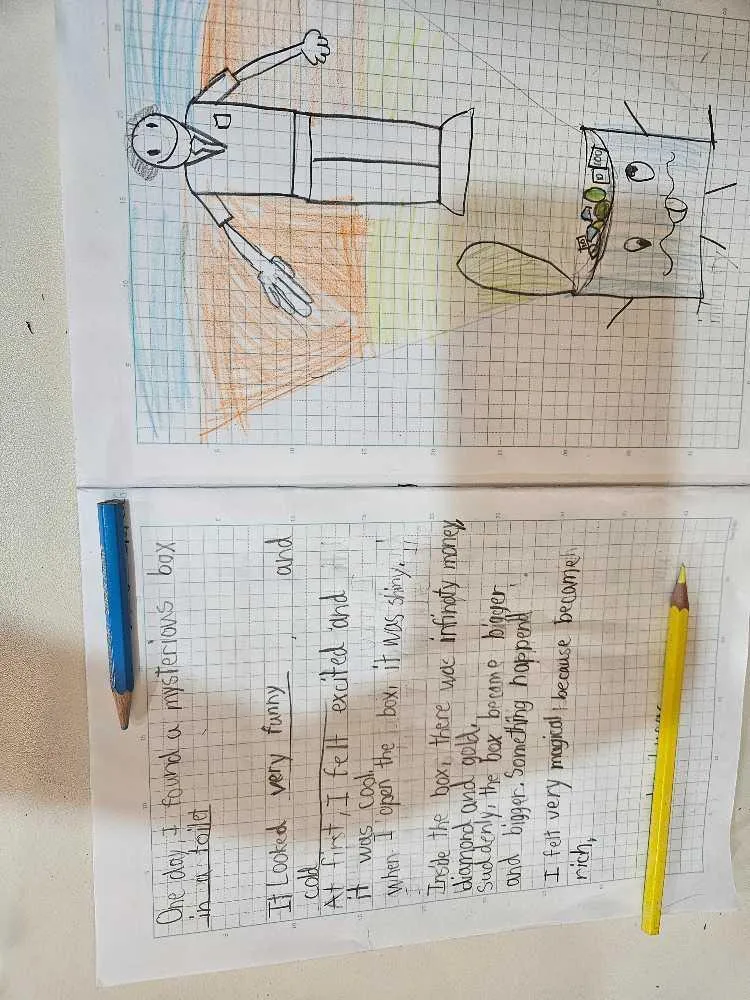 One day I found a mysterious box
in a toilet
It Looked very funny and
cold
At first, I felt excited and
it was cool.
when I open the box, it was shiny.
Inside the box, there was infinaty money,
diamond and gold.
suddenly, the box became bigger
and bigger. Something happend
I felt very magical because became
rich,
10
100
10